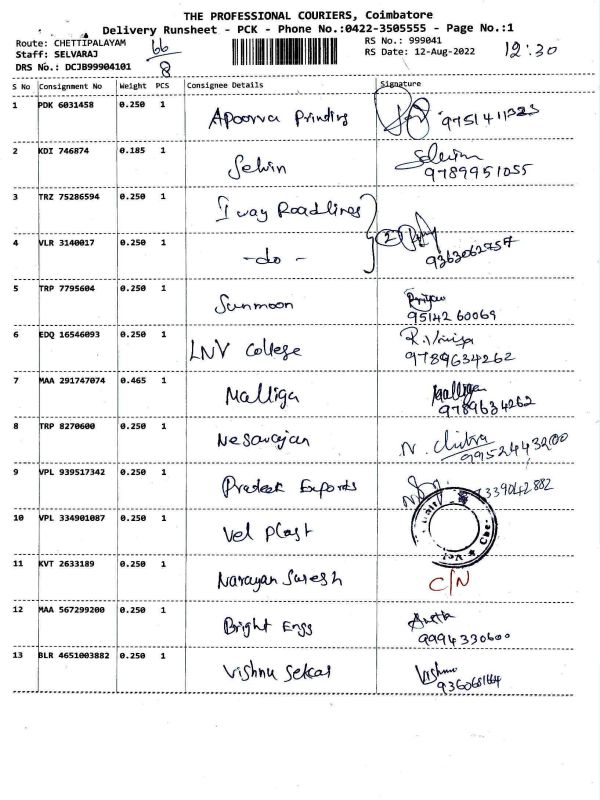 THE PROFESSIONAL COURIERS, Coimbatore
Delivery Runsheet - PCK - Phone No.:0422-3505555 - Page No.:1
Route: CHETTIPALAYAM
Staff: SELVARAJ
DRS No.: DCJB99904101
66
8
RS No.: 999041
RS Date: 12-Aug-2022
12:30
S No Consignment No Weight PCS Consignee Details Signature
1 PDK 6031458 0.250 1 Apoorva Printing 9751411323
2 KDI 746874 0.185 1 Selvin Selvin
9789951055
3 TRZ 75286594 0.250 1 I way Roadlines
4 VLR 3140017 0.250 1 -do- 2
9363062757
5 TRP 7795604 0.250 1 Sunmoon Priya
9514260069
6 EDQ 16546093 0.250 1 LNV College R.Vniya
9789634262
7 MAA 291747074 0.465 1 Malliga Malliga
9789634262
8 TRP 8270600 0.250 1 Nesavajan N. Chitra
9952443200
9 VPL 939517342 0.250 1 Prateek Exports 7339042882
10 VPL 334901087 0.250 1 Vel Plast
11 KVT 2633189 0.250 1 Narayan Suresh C/N
12 MAA 567299200 0.250 1 Bright Engg
9994330600
13 BLR 4651003882 0.250 1 Vishnu Sekar Vishnu